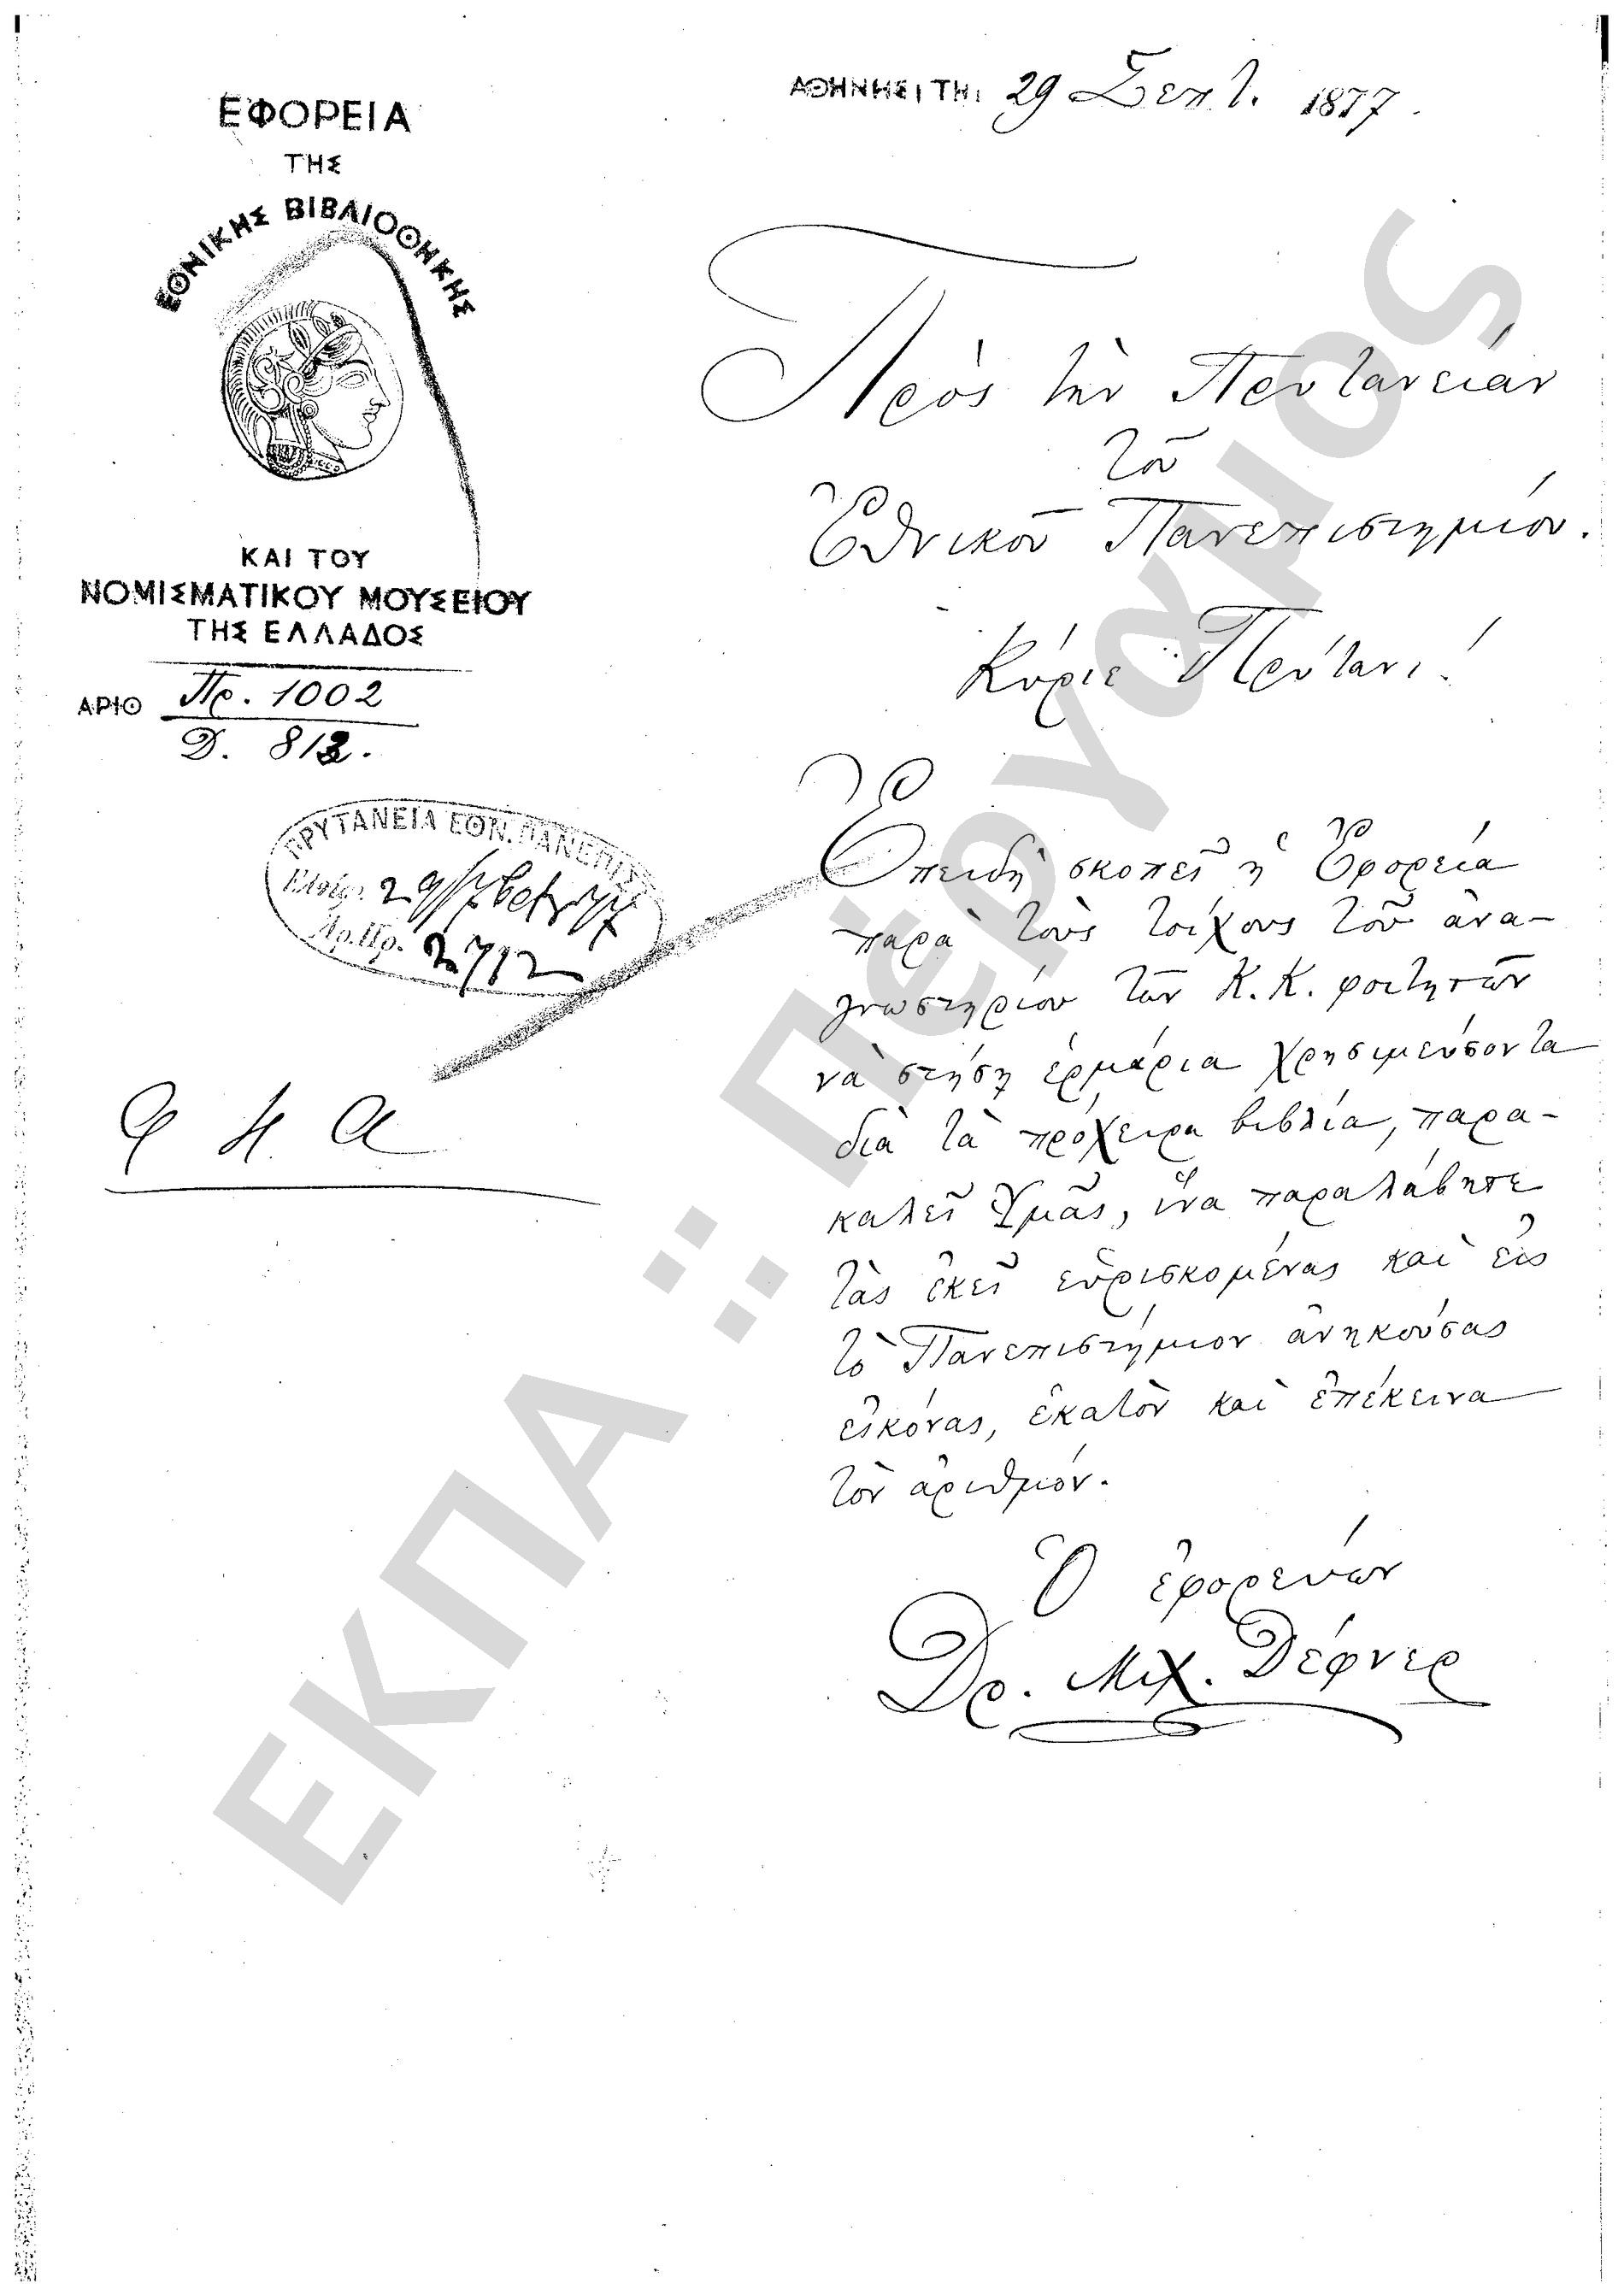 ΕΦΟΡΕΙΑ
ΤΗΣ
ΕΘΝΙΚΗΣ ΒΙΒΛΙΟΘΗΚΗΣ
ΚΑΙ ΤΟΥ
ΝΟΜΙΣΜΑΤΙΚΟΥ ΜΟΥΣΕΙΟΥ
ΤΗΣ ΕΛΛΑΔΟΣ
ΑΡΙΘ Πρ. 1002
Δ. 813.
ΠΡΥΤΑΝΕΙΑ ΕΘΝ. ΠΑΝΕΠΙΣ
Ἀρ.Πρ. 2712
ΑΘΗΝΗΣΙ ΤΗ 29 Σεπτ. 1877.
Πρὸς τὴν Πρυτανείαν
τοῦ
Ἐθνικοῦ Πανεπιστημίου.
Κύριε Πρύτανι!
Ἐπειδὴ σκοπεῖ ἡ Ἐφορεία
παρὰ τοὺς τοίχους τοῦ ἀνα-
γνωστηρίου τῶν Κ.Κ. φοιτητῶν
νὰ στήσῃ ἑρμάρια χρησιμεύσοντα
διὰ τὰ πρόχειρα βιβλία, παρα-
καλεῖ Ὑμᾶς, ἵνα παραλάβητε
τὰς ἐκεῖ εὑρισκομένας καὶ εἰς
τὸ Πανεπιστήμιον ἀνηκούσας
εἰκόνας, ἑκατὸν καὶ ἐπέκεινα
τὸν ἀριθμόν.
Ὁ ἐφορεύων
Δρ. Μιχ. Δέφνερ
ΕΚΠΑ :: Πέργαμος